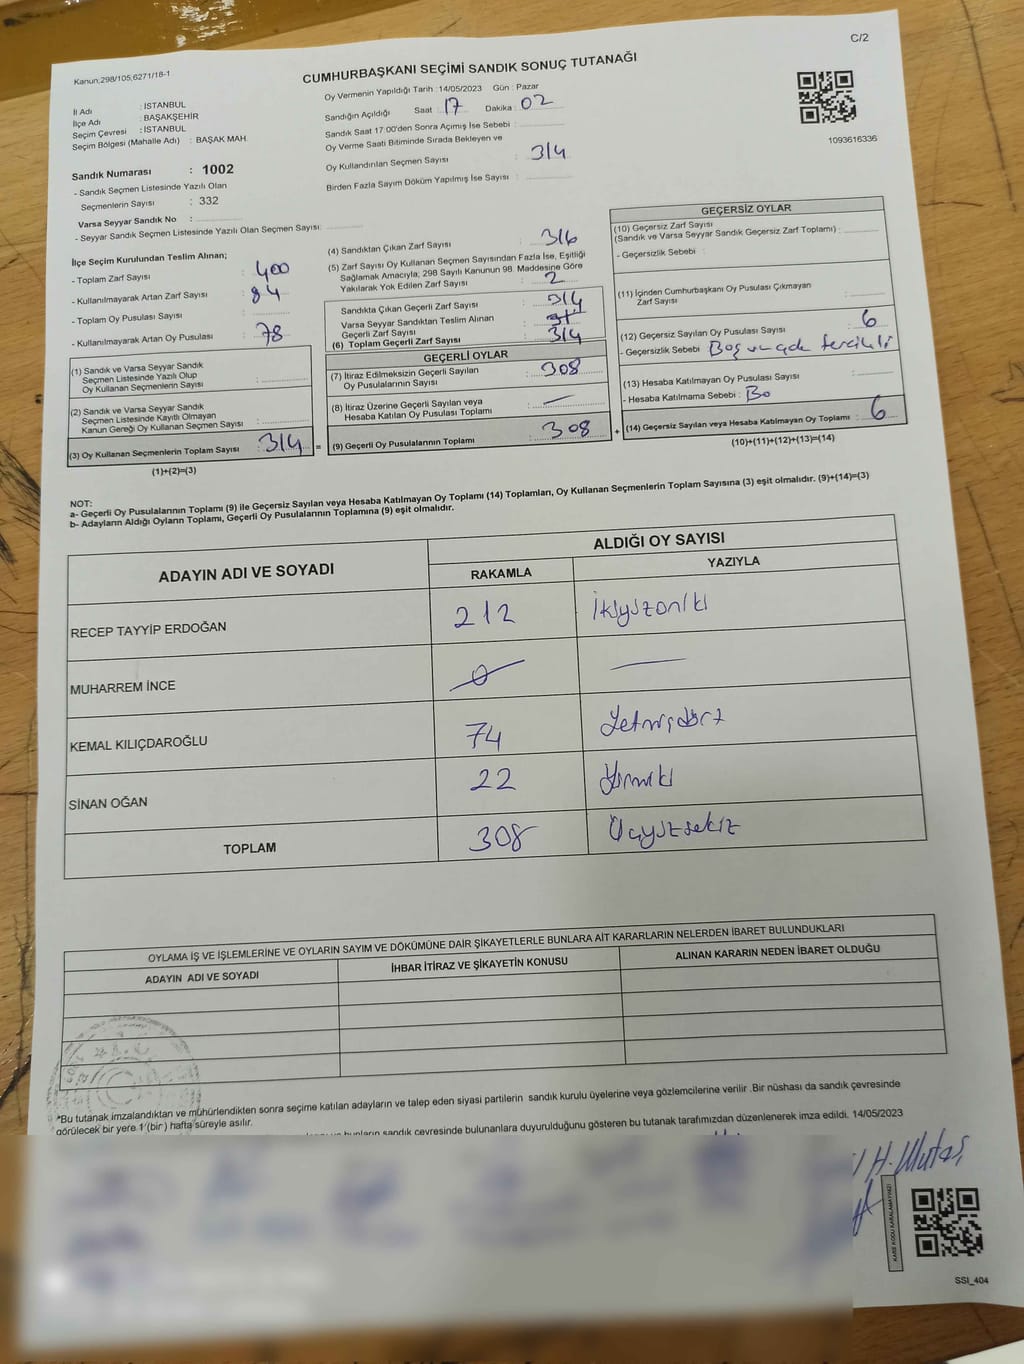 C/2
Kanun;298/105,6271/18-1
CUMHURBAŞKANI SEÇİMİ SANDIK SONUÇ TUTANAĞI
İl Adı : İSTANBUL
İlçe Adı : BAŞAKŞEHİR
Seçim Çevresi : İSTANBUL
Seçim Bölgesi (Mahalle Adı) : BAŞAK MAH.
Sandık Numarası : 1002
- Sandık Seçmen Listesinde Yazılı Olan
Seçmenlerin Sayısı : 332
Varsa Seyyar Sandık No :
- Seyyar Sandık Seçmen Listesinde Yazılı Olan Seçmen Sayısı:
Oy Vermenin Yapıldığı Tarih :14/05/2023 Gün : Pazar
Sandığın Açıldığı Saat : 17 Dakika : 02
Sandık Saat 17:00'den Sonra Açımış İse Sebebi :
Oy Verme Saati Bitiminde Sırada Bekleyen ve
Oy Kullandırılan Seçmen Sayısı : 314
Birden Fazla Sayım Döküm Yapılmış İse Sayısı :
1093616336
İlçe Seçim Kurulundan Teslim Alınan;
- Toplam Zarf Sayısı : 400
- Kullanılmayarak Artan Zarf Sayısı : 84
- Toplam Oy Pusulası Sayısı :
- Kullanılmayarak Artan Oy Pusulası : 78
(1) Sandık ve Varsa Seyyar Sandık
Seçmen Listesinde Yazılı Olup
Oy Kullanan Seçmenlerin Sayısı :
(2) Sandık ve Varsa Seyyar Sandık
Seçmen Listesinde Kayıtlı Olmayan
Kanun Gereği Oy Kullanan Seçmen Sayısı :
(3) Oy Kullanan Seçmenlerin Toplam Sayısı : 314 =
(1)+(2)=(3)
(4) Sandıktan Çıkan Zarf Sayısı : 316
(5) Zarf Sayısı Oy Kullanan Seçmen Sayısından Fazla İse, Eşitliği
Sağlamak Amacıyla; 298 Sayılı Kanunun 98. Maddesine Göre
Yakılarak Yok Edilen Zarf Sayısı : 2
Sandıkta Çıkan Geçerli Zarf Sayısı : 314
Varsa Seyyar Sandıktan Teslim Alınan
Geçerli Zarf Sayısı :
(6) Toplam Geçerli Zarf Sayısı : 314
GEÇERLİ OYLAR
(7) İtiraz Edilmeksizin Geçerli Sayılan
Oy Pusulalarının Sayısı : 308
(8) İtiraz Üzerine Geçerli Sayılan veya
Hesaba Katılan Oy Pusulası Toplamı : —
(9) Geçerli Oy Pusulalarının Toplamı : 308 +
GEÇERSİZ OYLAR
(10) Geçersiz Zarf Sayısı
(Sandık ve Varsa Seyyar Sandık Geçersiz Zarf Toplamı) :
- Geçersizlik Sebebi :
(11) İçinden Cumhurbaşkanı Oy Pusulası Çıkmayan
Zarf Sayısı :
(12) Geçersiz Sayılan Oy Pusulası Sayısı : 6
- Geçersizlik Sebebi : Boş
(13) Hesaba Katılmayan Oy Pusulası Sayısı :
- Hesaba Katılmama Sebebi : Bo
(14) Geçersiz Sayılan veya Hesaba Katılmayan Oy Toplamı : 6
(10)+(11)+(12)+(13)=(14)
NOT:
a- Geçerli Oy Pusulalarının Toplamı (9) ile Geçersiz Sayılan veya Hesaba Katılmayan Oy Toplamı (14) Toplamları, Oy Kullanan Seçmenlerin Toplam Sayısına (3) eşit olmalıdır. (9)+(14)=(3)
b- Adayların Aldığı Oyların Toplamı, Geçerli Oy Pusulalarının Toplamına (9) eşit olmalıdır.
ADAYIN ADI VE SOYADI ALDIĞI OY SAYISI
RAKAMLA YAZIYLA
RECEP TAYYİP ERDOĞAN 212 İkiyüzoniki
MUHARREM İNCE 0 —
KEMAL KILIÇDAROĞLU 74 Yetmişdört
SİNAN OĞAN 22 Yirmiki
TOPLAM 308 Üçyüzsekiz
OYLAMA İŞ VE İŞLEMLERİNE VE OYLARIN SAYIM VE DÖKÜMÜNE DAİR ŞİKAYETLERLE BUNLARA AİT KARARLARIN NELERDEN İBARET BULUNDUKLARI
ADAYIN ADI VE SOYADI İHBAR İTİRAZ VE ŞİKAYETİN KONUSU ALINAN KARARIN NEDEN İBARET OLDUĞU
*Bu tutanak imzalandıktan ve mühürlendikten sonra seçime katılan adayların ve talep eden siyasi partilerin sandık kurulu üyelerine veya gözlemcilerine verilir .Bir nüshası da sandık çevresinde
görülecek bir yere 1 (bir ) hafta süreyle asılır.
bunların sandık çevresinde bulunanlara duyurulduğunu gösteren bu tutanak tarafımızdan düzenlenerek imza edildi. 14/05/2023
SSI_404